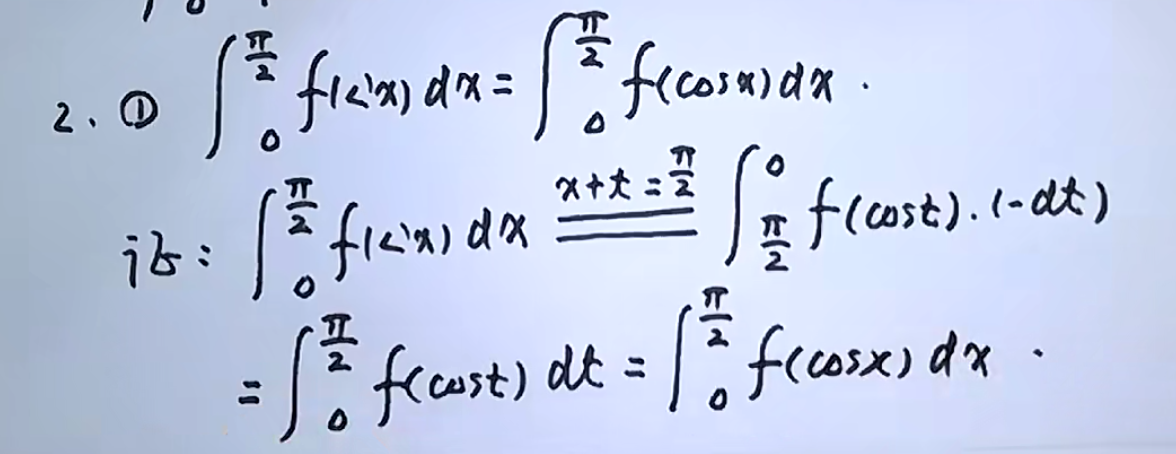 2. ① ∫₀^{π/2} f(sin x) dx = ∫₀^{π/2} f(cos x) dx .
证: ∫₀^{π/2} f(sin x) dx \xlongequal{x+t=π/2} ∫_{π/2}^0 f(cos t)·(-dt)
= ∫₀^{π/2} f(cos t) dt = ∫₀^{π/2} f(cos x) dx .